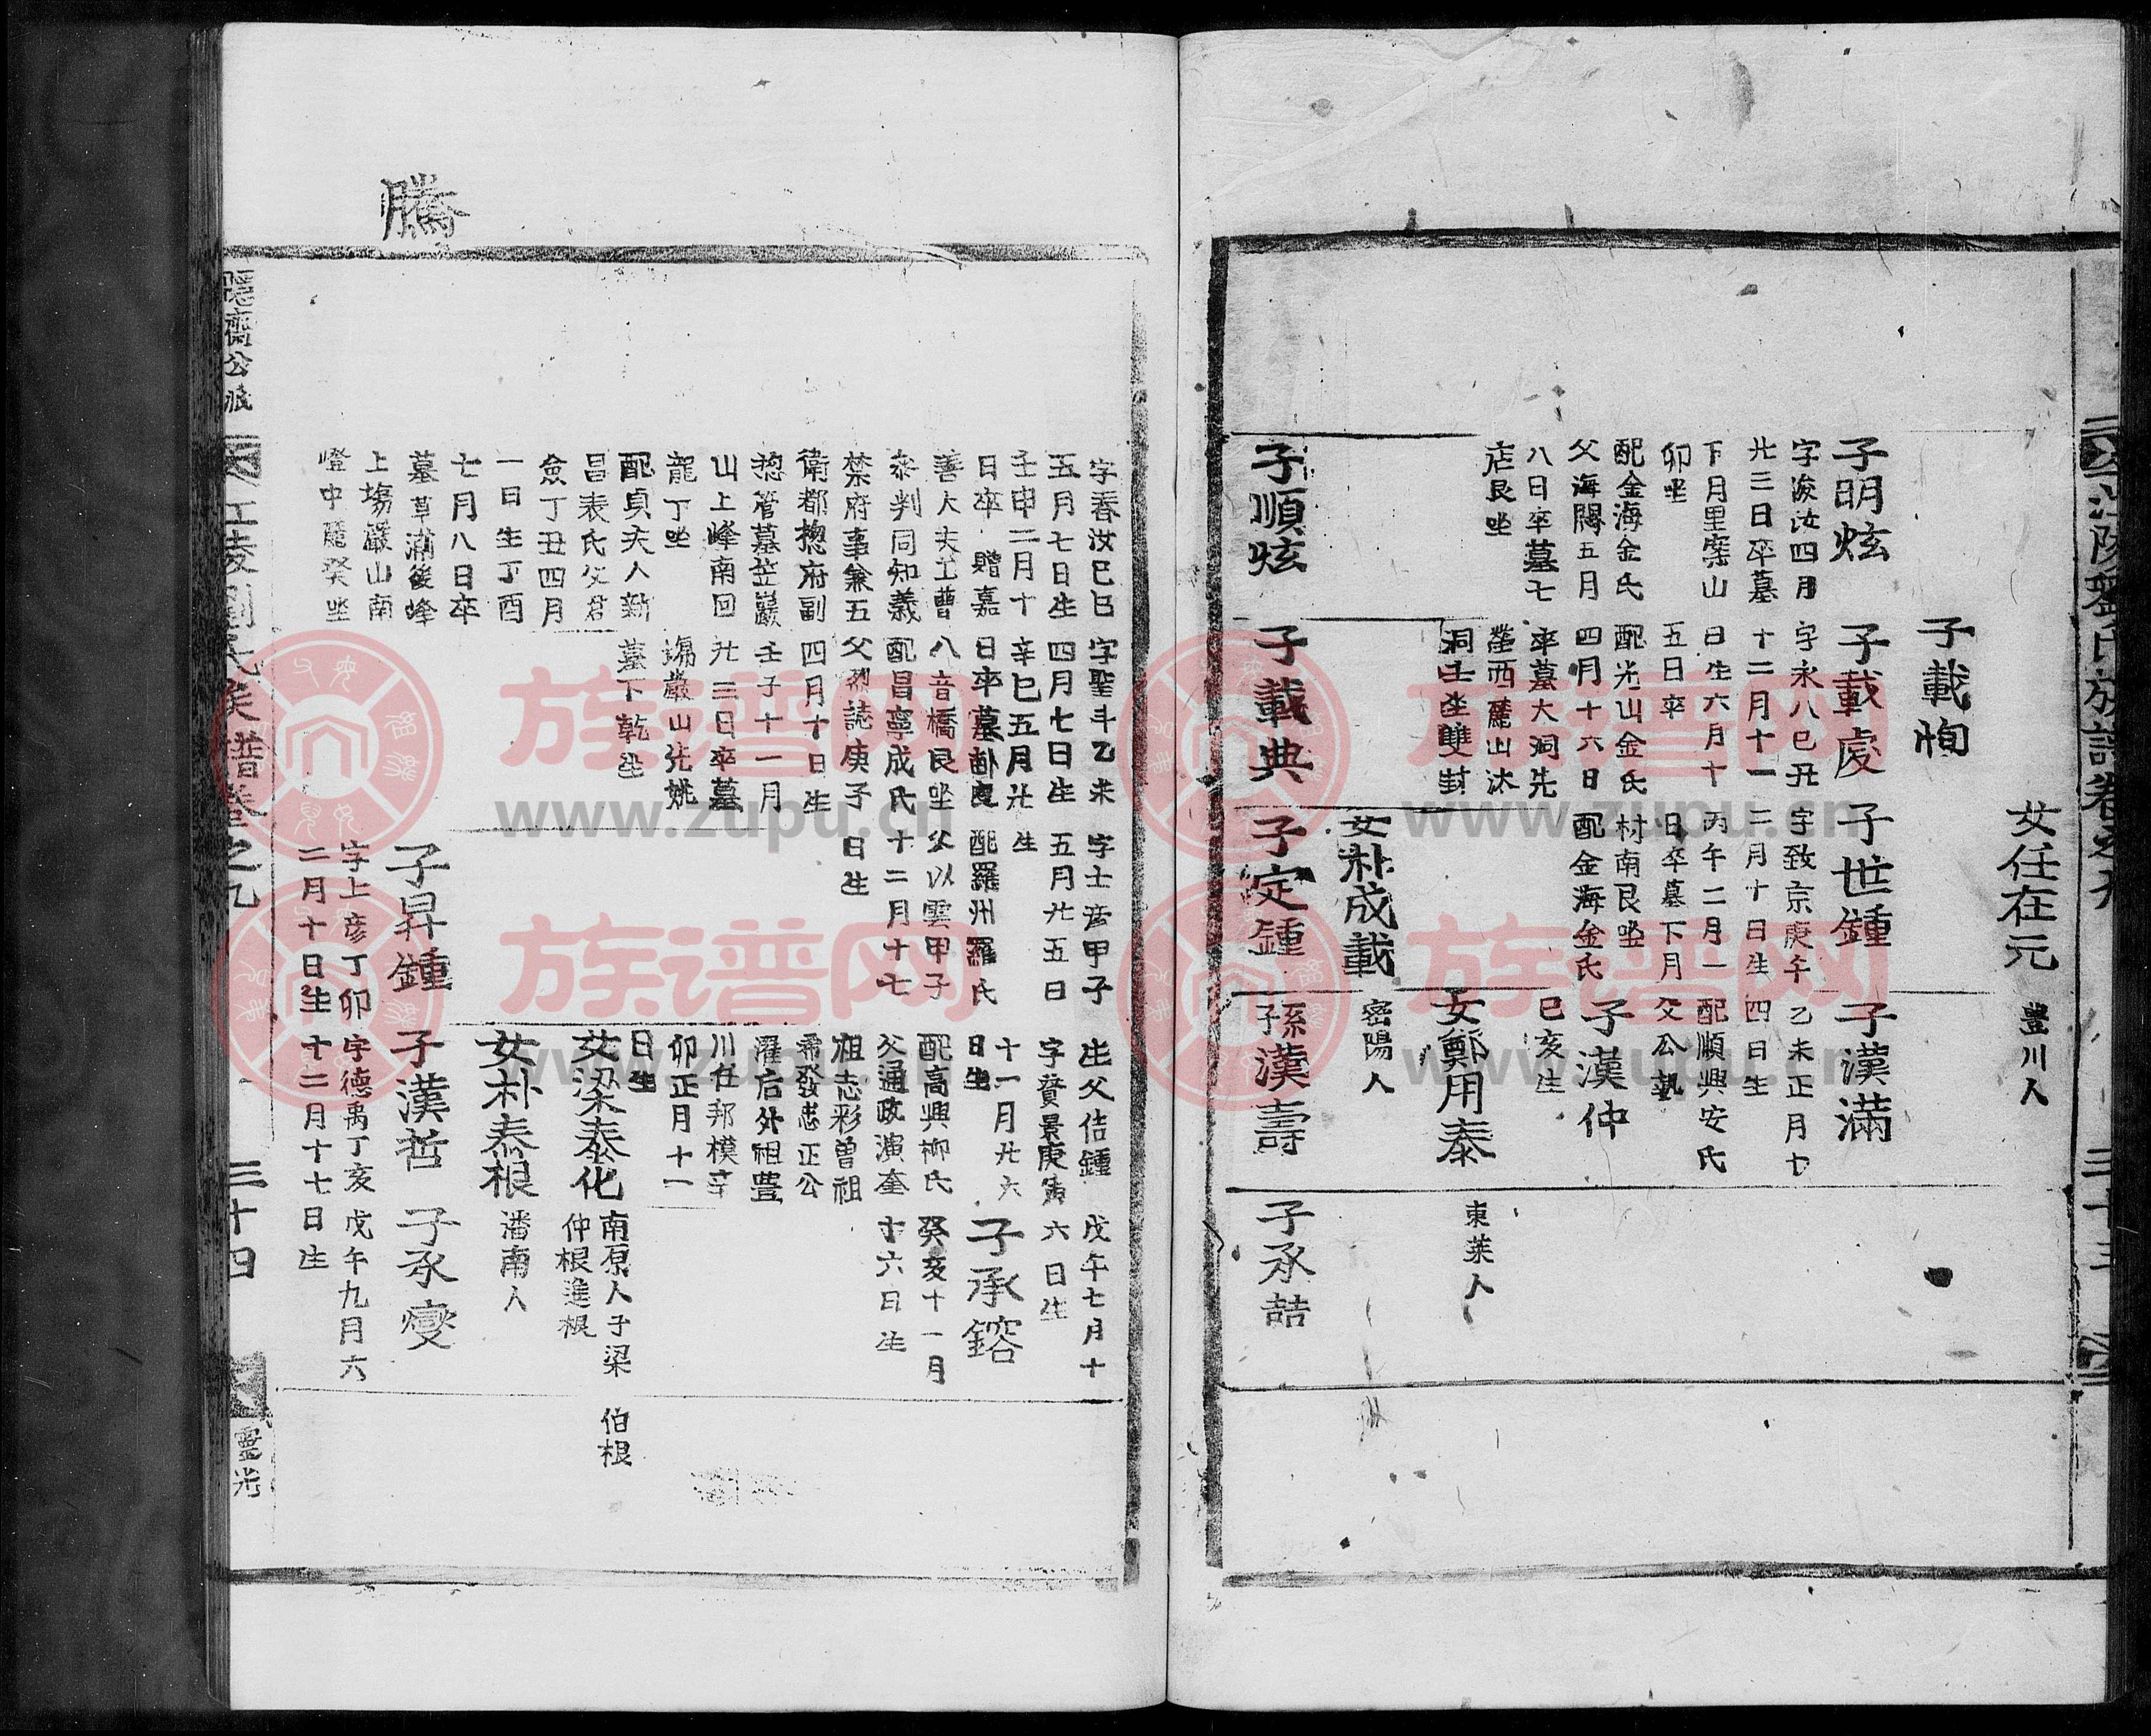 江陵劉氏族譜卷之九
三十三
女任在元
豊川人
子載恂
子明炫
字浚汝四月
廿三日卒墓
下月里案山
卯坐
配金海金氏
父海閥五月
八日卒墓七
店艮坐
子載處
字永八己丑
十二月十一
日生六月十
五日卒
配光山金氏
四月十六日
卒墓大洞先
塋西麓山沐
洞壬坐雙封
子世鍾
字致京庚午
二月十日生
丙午二月一
日卒墓下月
村南艮坐
配金海金氏
子漢滿
乙未正月七
四日生
配順興安氏
父公執
子漢仲
己亥生
女鄭用泰
東萊人
女朴成載
密陽人
子順炫
子載典
子定鍾
孫漢壽
子承喆
字春汝己巳
五月七日生
壬申二月十
日卒 贈嘉
善大夫工曹
參判同知義
禁府事兼五
衛都摠府副
摠管墓笠巖
山上峰南回
龍丁坐
配貞夫人新
昌表氏父君
僉丁丑四月
一日生丁酉
七月八日卒
墓草浦後峰
上塲巖山南
燈中麓癸坐
字聖斗乙未
四月七日生
辛巳五月廿
日卒墓卦良
八音橋艮坐
配昌寧成氏
父烈誌庚子
四月十日生
壬子十一月
廿三日卒墓
塲巖山先姚
墓下乾坐
字士彦甲子
五月廿五日
生
配羅州羅氏
父以雲甲子
十二月十七
日生
生父佶鍾
字賛景庚寅
十一月廿六
日生
配高興柳氏
父通政演奎
祖志彩曽祖
希發忠正公
濯后外祖豊
川任邦模辛
卯正月十一
日生
戊午七月十
六日生
子承鎔
癸亥十一月
十六日生
女梁泰化
南原人子梁
仲根進根
伯根
女朴泰根
潘南人
子昇鍾
字上彦丁卯
二月十日生
子漢哲
字德禹丁亥
十二月十七日生
子承燮
戊午九月六
騰
隱齋公派
江陵劉氏族譜卷之九
三十四
靈光